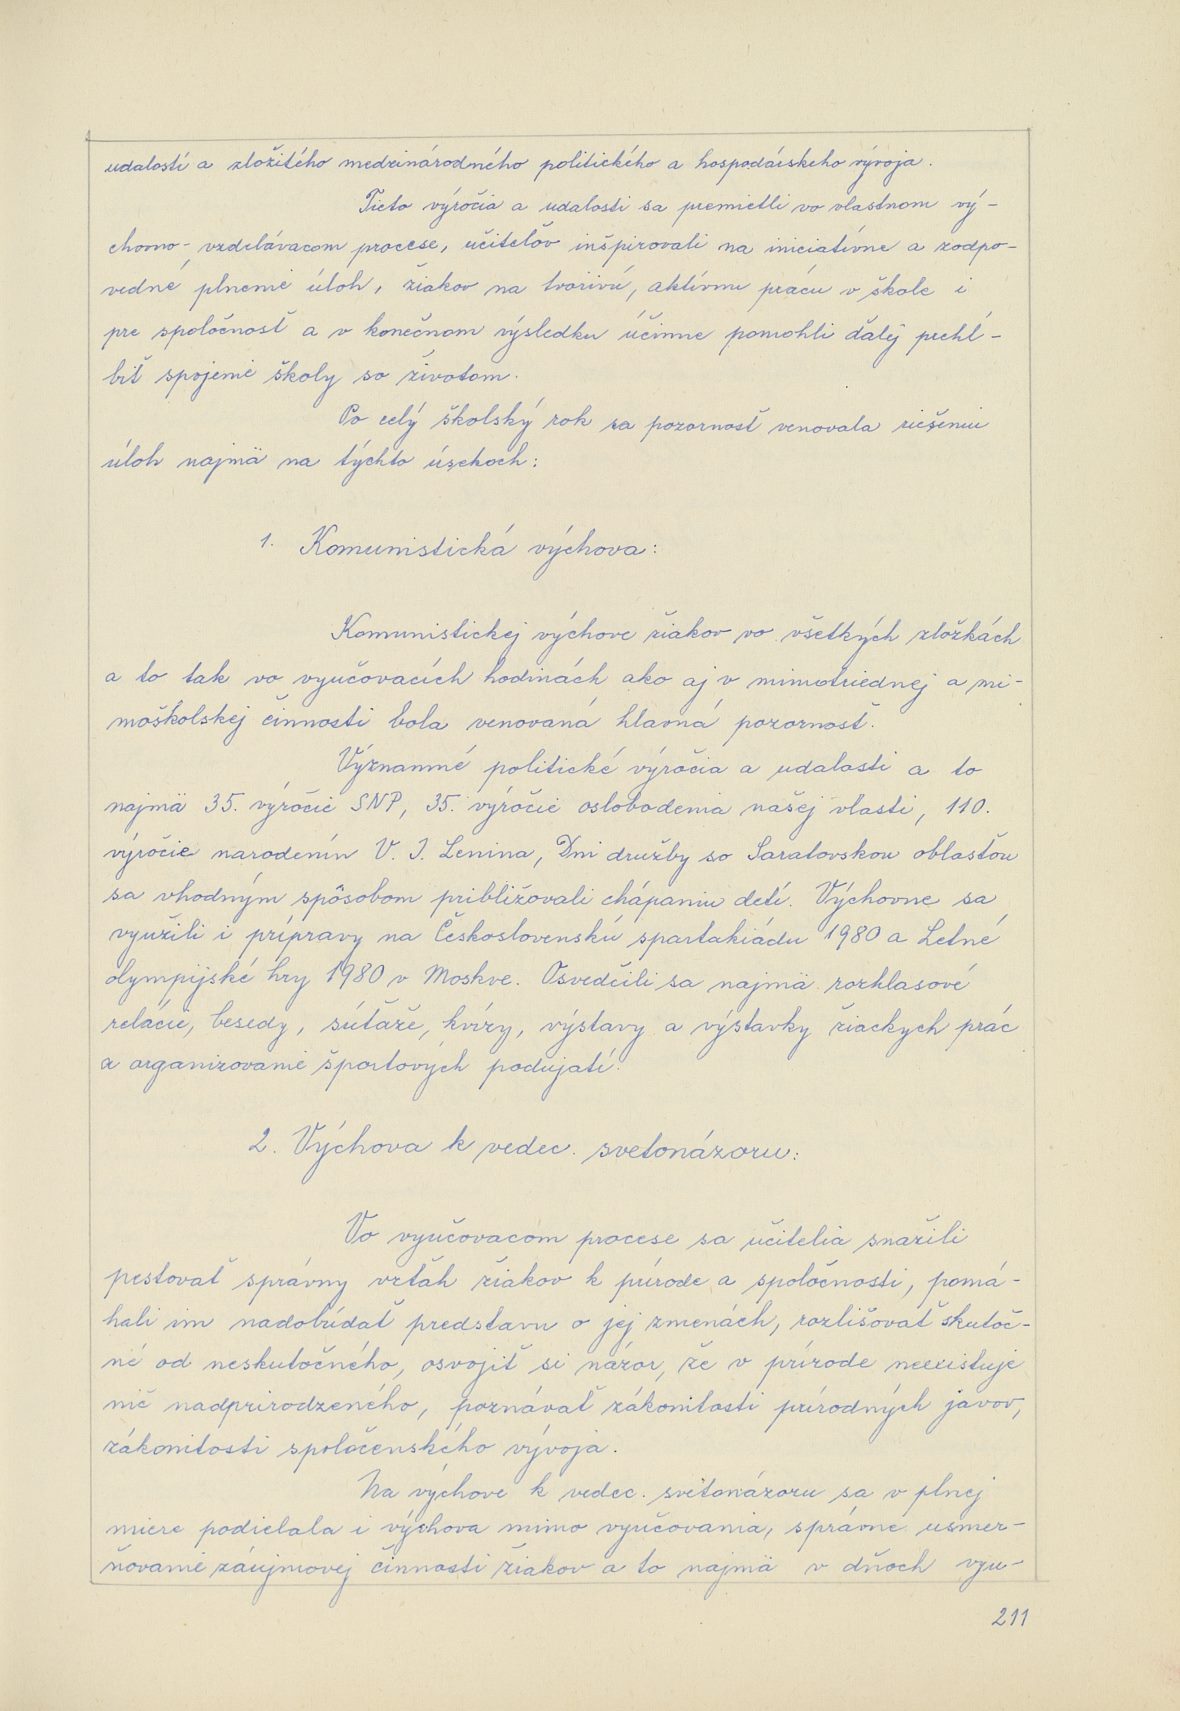 udalostí a zložitého medzinárodného politického a hospodárskeho vývoja.
Tieto výročia a udalosti sa premietli vo vlastnom vý-
chovno-vzdelávacom procese, učiteľov inšpirovali na iniciatívne a zodpo-
vedné plnenie úloh, žiakov na tvorivú, aktívnu prácu v škole i
pre spoločnosť a v konečnom výsledku účinne pomohli ďalej prehĺ-
biť spojenie školy so životom.
Po celý školský rok sa pozornosť venovala riešeniu
úloh najmä na týchto úsekoch:
1. Komunistická výchova:
Komunistickej výchove žiakov vo všetkých zložkách
a to tak vo vyučovacích hodinách ako aj v mimotriednej a mi-
moškolskej činnosti bola venovaná hlavná pozornosť.
Významné politické výročia a udalosti a to
najmä 35. výročie SNP, 35. výročie oslobodenia našej vlasti, 110.
výročie narodenín V. I. Lenina, Dni družby so Saratovskou oblasťou
sa vhodným spôsobom približovali chápaniu detí. Výchovne sa
využili i prípravy na Československú spartakiádu 1980 a Letné
olympijské hry 1980 v Moskve. Osvedčili sa najmä rozhlasové
relácie, besedy, súťaže, kvízy, výstavy a výstavky žiackych prác
a organizovanie športových podujatí.
2. Výchova k vedec. svetonázoru:
Vo vyučovacom procese sa učitelia snažili
pestovať správny vzťah žiakov k prírode a spoločnosti, pomá-
hali im nadobúdať predstavu o jej zmenách, rozlišovať skutoč-
né od neskutočného, osvojiť si názor, že v prírode neexistuje
nič nadprirodzeného, poznávať zákonitosti prírodných javov,
zákonitosti spoločenského vývoja.
Na výchove k vedec. svetonázoru sa v plnej
miere podielala i výchova mimo vyučovania, správne usmer-
ňovanie záujmovej činnosti žiakov a to najmä v dňoch vyu-
211